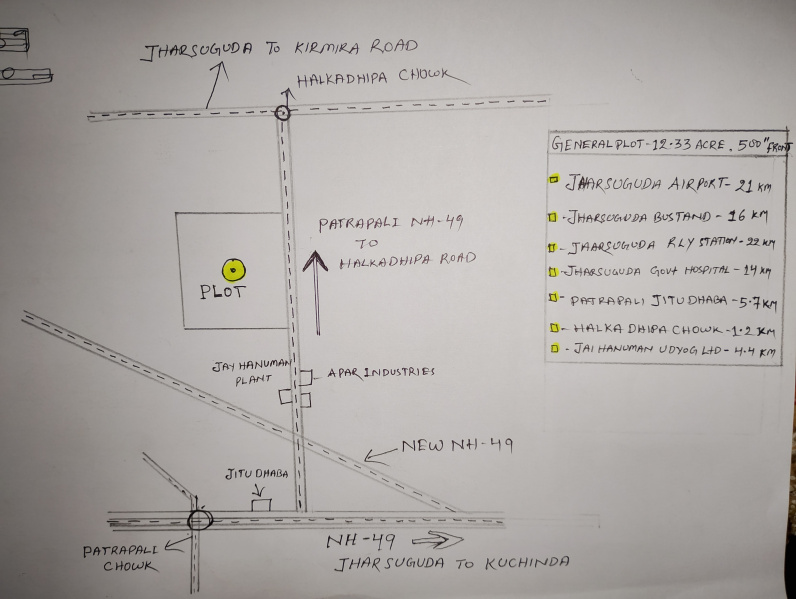 JHARSUGUDA TO KIRMIRA ROAD
HALKADHIPA CHOWK
GENERAL PLOT - 12.33 ACRE, 500" FRONT
JHARSUGUDA AIRPORT - 21 KM
- JHARSUGUDA BUSTAND - 16 KM
- JAARSUGUDA RLY STATION - 22 KM
- JHARSUGUDA GOVT HOSPITAL - 14 KM
- PATRAPALI JITU DHABA - 5.7 KM
- HALKA DHIPA CHOWK - 1.2 KM
- JAI HANUMAN UDYOG LTD - 4.4 KM
PATRAPALI NH-49
TO
HALKADHIPA ROAD
PLOT
JAY HANUMAN
PLANT
APAR INDUSTRIES
NEW NH-49
JITU DHABA
PATRAPALI
CHOWK
NH-49
JHARSUGUDA TO KUCHINDA